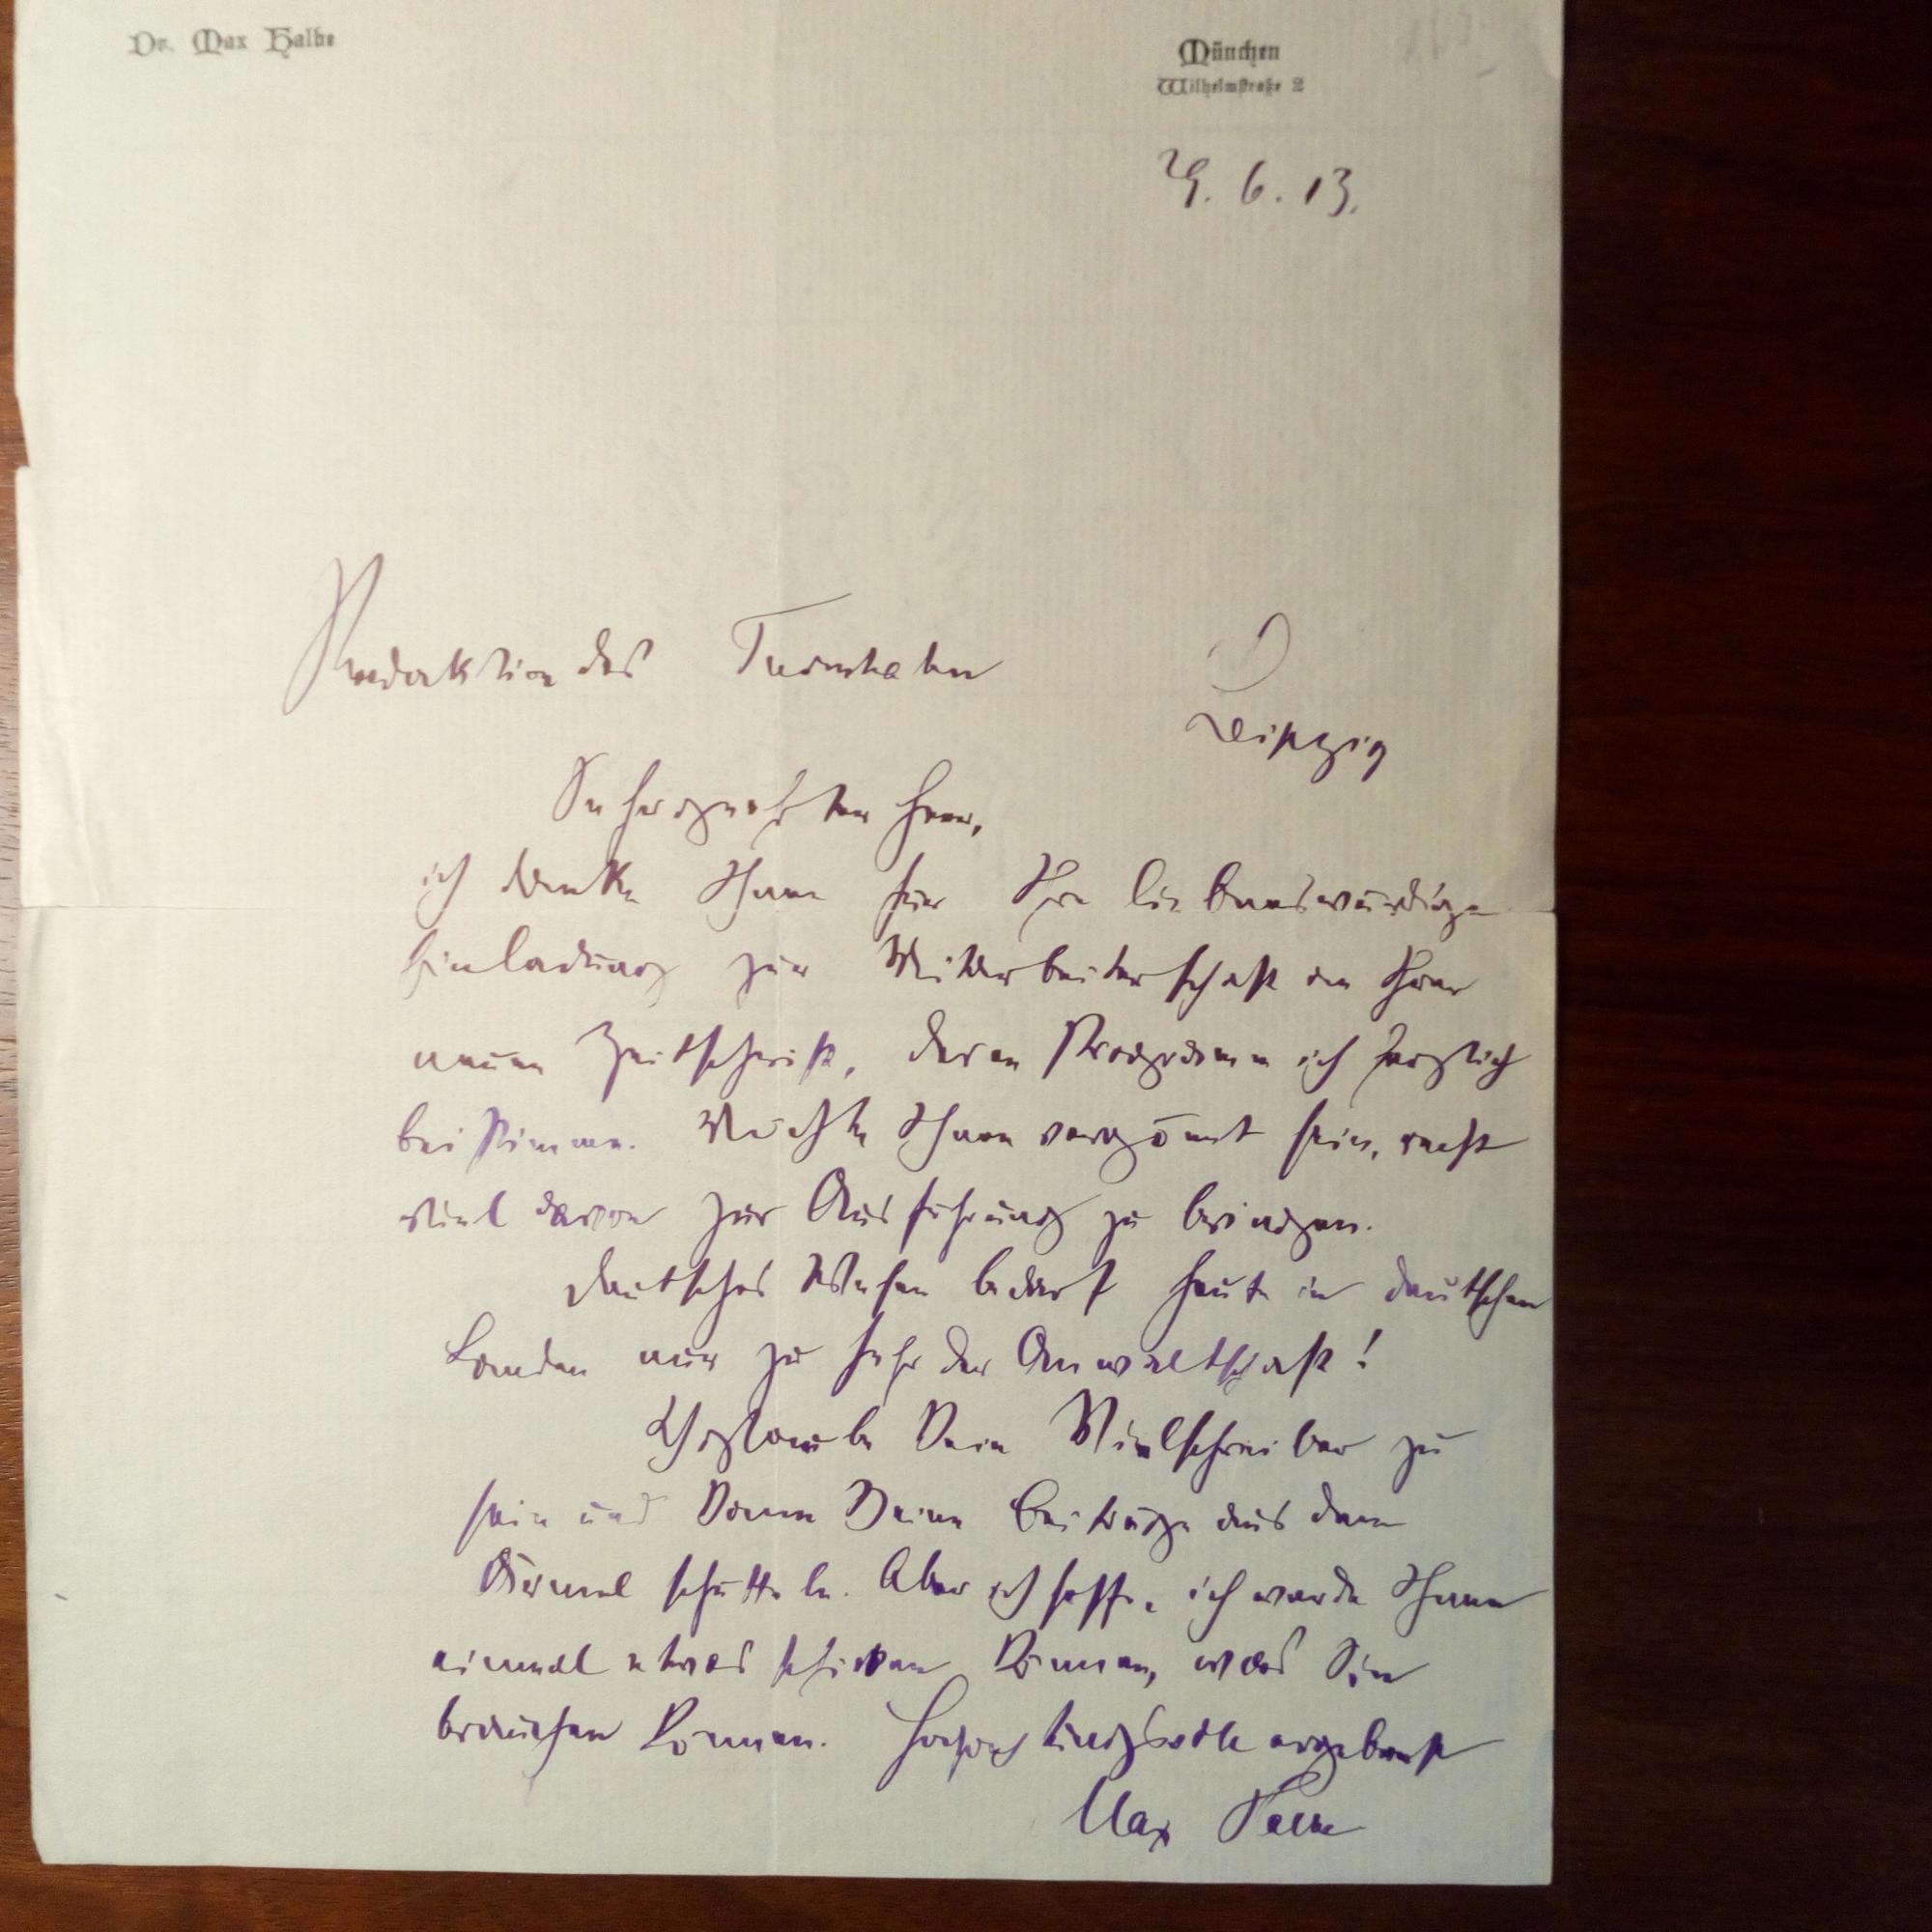 Dr. Max Halbe
München
Wilhelmstraße 2
29. 6. 13.
Redaktion des Turmhahn
Leipzig
Sehr geehrter Herr,
ich danke Ihnen für Ihre liebenswürdige
Einladung zur Mitarbeiterschaft an Ihrer
neuen Zeitschrift, deren Programm ich herzlich
beistimme. Möchte Ihnen vergönnt sein, recht
viel davon zur Ausführung zu bringen.
Deutsches Wesen bedarf heute in deutschen
Landen nur zu sehr der Anwaltschaft!
Ich glaube kein Vielschreiber zu
sein und kann keine Beiträge aus dem
Ärmel schütteln. Aber ich hoffe, ich werde Ihnen
einmal etwas schicken können, was Sie
brauchen können. Hochachtungsvoll ergebenst
Max Halbe